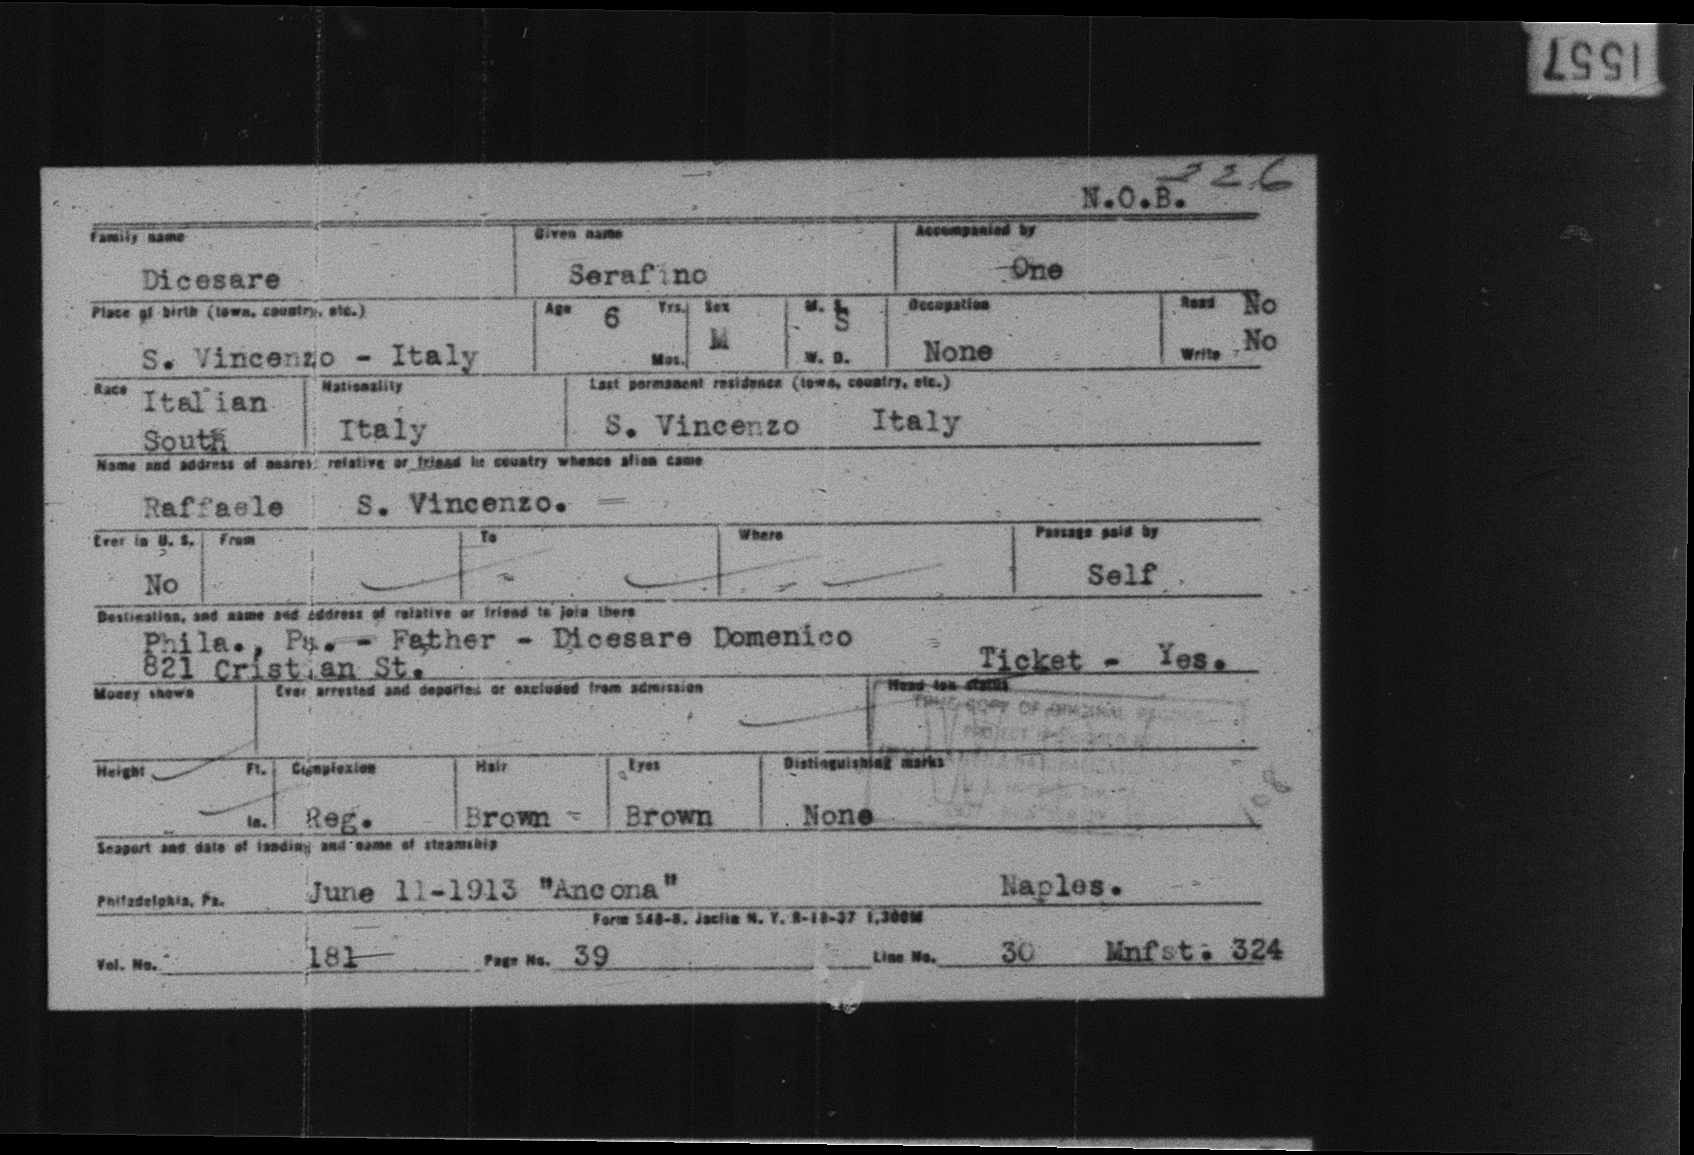 1557
226
N.O.B.
Family name Given name Accompanied by
Dicesare Serafino One
Place of birth (town, country, etc.) Age 6 Yrs. Sex M. S. Occupation Read No
S
S. Vincenzo - Italy Mos. M W. D. None Write No
Race Italian Nationality Last permanent residence (town, country, etc.)
South Italy S. Vincenzo Italy
Name and address of nearest relative or friend in country whence alien came
Raffaele S. Vincenzo.
Ever in U. S. From To Where Passage paid by
No Self
Destination, and name and address of relative or friend to join there
Phila., Pa. - Father - Dicesare Domenico
821 Cristian St. Ticket - Yes.
Money shown Ever arrested and deported or excluded from admission Head tax status
TRUE COPY OF ORIGINAL RECORD
PROJECT
Height Ft. Complexion Hair Eyes Distinguishing marks
In. Reg. Brown Brown None
Seaport and date of landing and name of steamship
Philadelphia, Pa. June 11-1913 "Ancona" Naples.
Form 548-B. Jaclin N. Y. 8-18-37 1,300M
Vol. No. 181 Page No. 39 Line No. 30 Mnfst. 324